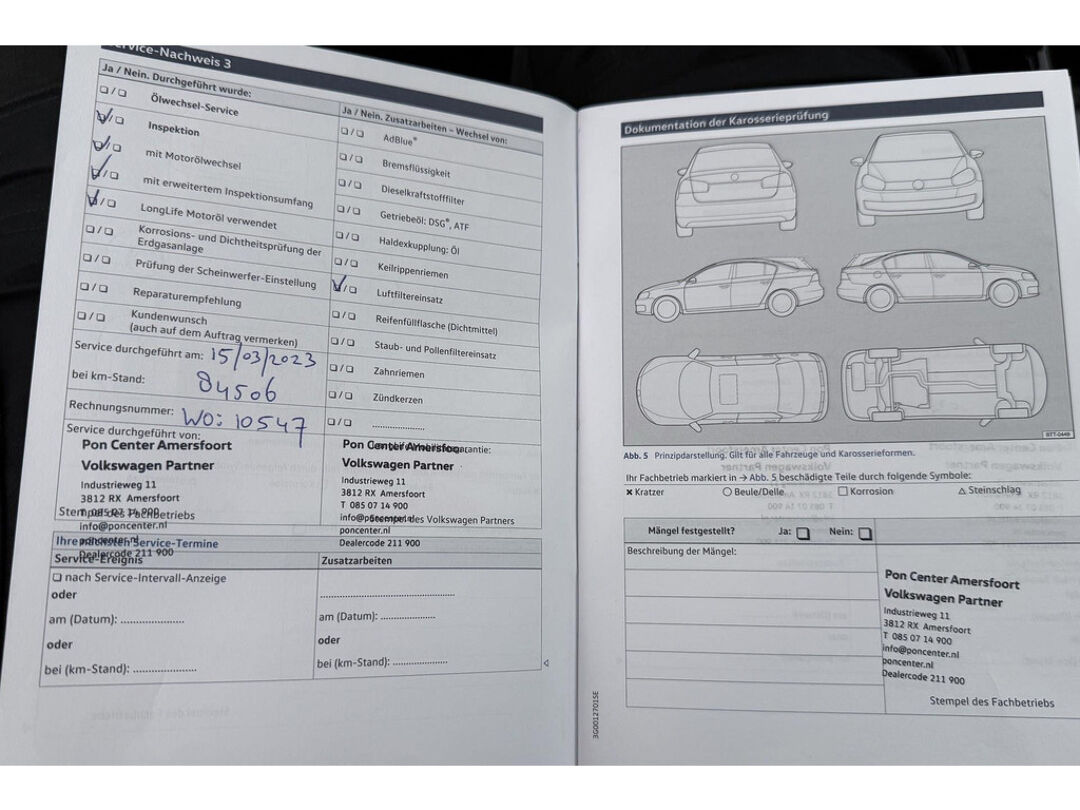 ervice-Nachweis 3
Ja / Nein. Durchgeführt wurde:
❏ / ❏ Ölwechsel-Service
❏ / ❏ Inspektion
❏ / ❏ mit Motorölwechsel
❏ / ❏ mit erweitertem Inspektionsumfang
❏ / ❏ LongLife Motoröl verwendet
❏ / ❏ Korrosions- und Dichtheitsprüfung der
Erdgasanlage
❏ / ❏ Prüfung der Scheinwerfer-Einstellung
❏ / ❏ Reparaturempfehlung
❏ / ❏ Kundenwunsch
(auch auf dem Auftrag vermerken)
Service durchgeführt am: 15/03/2023
bei km-Stand: 84506
Rechnungsnummer: WO: 10547
Service durchgeführt von:
Pon Center Amersfoort
Volkswagen Partner
Industrieweg 11
3812 RX Amersfoort
T 085 07 14 900
Stempel des Fachbetriebs
info@poncenter.nl
poncenter.nl
Dealercode 211 900
Ja / Nein. Zusatzarbeiten – Wechsel von:
❏ / ❏ AdBlue®
❏ / ❏ Bremsflüssigkeit
❏ / ❏ Dieselkraftstofffilter
❏ / ❏ Getriebeöl: DSG®, ATF
❏ / ❏ Haldexkupplung: Öl
❏ / ❏ Keilrippenriemen
❏ / ❏ Luftfiltereinsatz
❏ / ❏ Reifenfüllflasche (Dichtmittel)
❏ / ❏ Staub- und Pollenfiltereinsatz
❏ / ❏ Zahnriemen
❏ / ❏ Zündkerzen
❏ / ❏ ......................
Pon Center Amersfoort
Volkswagen Partner
Industrieweg 11
3812 RX Amersfoort
T 085 07 14 900
info@poncenter.nl
Stempel des Volkswagen Partners
poncenter.nl
Dealercode 211 900
Ihre nächsten Service-Termine
Service-Ereignis
❏ nach Service-Intervall-Anzeige
oder
am (Datum): ......................
oder
bei (km-Stand): ......................
Zusatzarbeiten
..............................................
am (Datum): ...................
oder
bei (km-Stand): ...................
Dokumentation der Karosserieprüfung
BTT-0449
Abb. 5 Prinzipdarstellung: Gilt für alle Fahrzeuge und Karosserieformen.
Ihr Fachbetrieb markiert in → Abb. 5 beschädigte Teile durch folgende Symbole:
✖ Kratzer ○ Beule/Delle □ Korrosion △ Steinschlag
Mängel festgestellt? Ja: ❏ Nein: ❏
Beschreibung der Mängel:
Pon Center Amersfoort
Volkswagen Partner
Industrieweg 11
3812 RX Amersfoort
T 085 07 14 900
info@poncenter.nl
poncenter.nl
Dealercode 211 900
Stempel des Fachbetriebs
3G0012701SE